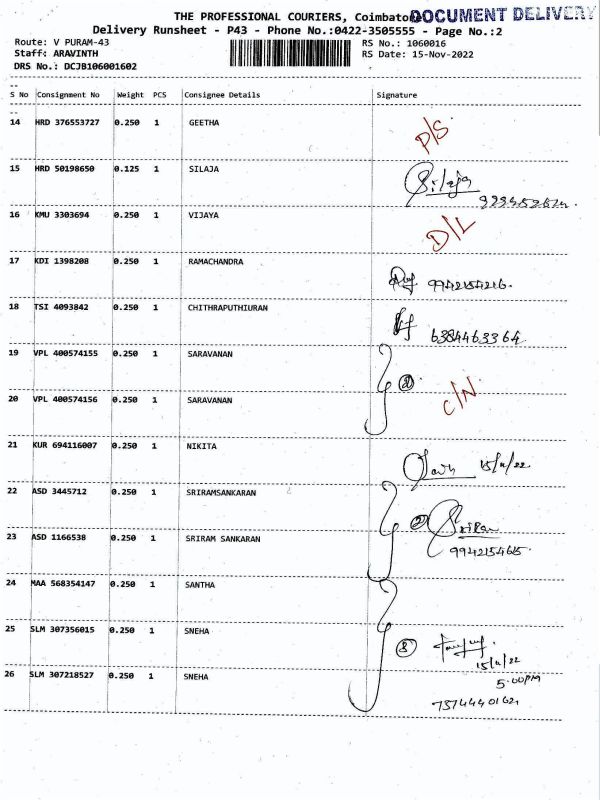 THE PROFESSIONAL COURIERS, Coimbato
DOCUMENT DELIVERY
Delivery Runsheet - P43 - Phone No.:0422-3505555 - Page No.:2
Route: V PURAM-43 RS No.: 1060016
Staff: ARAVINTH RS Date: 15-Nov-2022
DRS No.: DCJB106001602
S No Consignment No Weight PCS Consignee Details Signature
14 HRD 376553727 0.250 1 GEETHA P/S
15 HRD 50198650 0.125 1 SILAJA Silaja
16 KMU 3303694 0.250 1 VIJAYA D/L
17 KDI 1398208 0.250 1 RAMACHANDRA 9942154216.
18 TSI 4093842 0.250 1 CHITHRAPUTHIURAN 6384463364
19 VPL 400574155 0.250 1 SARAVANAN 2
20 VPL 400574156 0.250 1 SARAVANAN C/N
21 KUR 694116007 0.250 1 NIKITA 15/11/22
22 ASD 3445712 0.250 1 SRIRAMSANKARAN 2
23 ASD 1166538 0.250 1 SRIRAM SANKARAN 9942154615
24 MAA 568354147 0.250 1 SANTHA
25 SLM 307356015 0.250 1 SNEHA 3 15/11/22
26 SLM 307218527 0.250 1 SNEHA 5.00PM